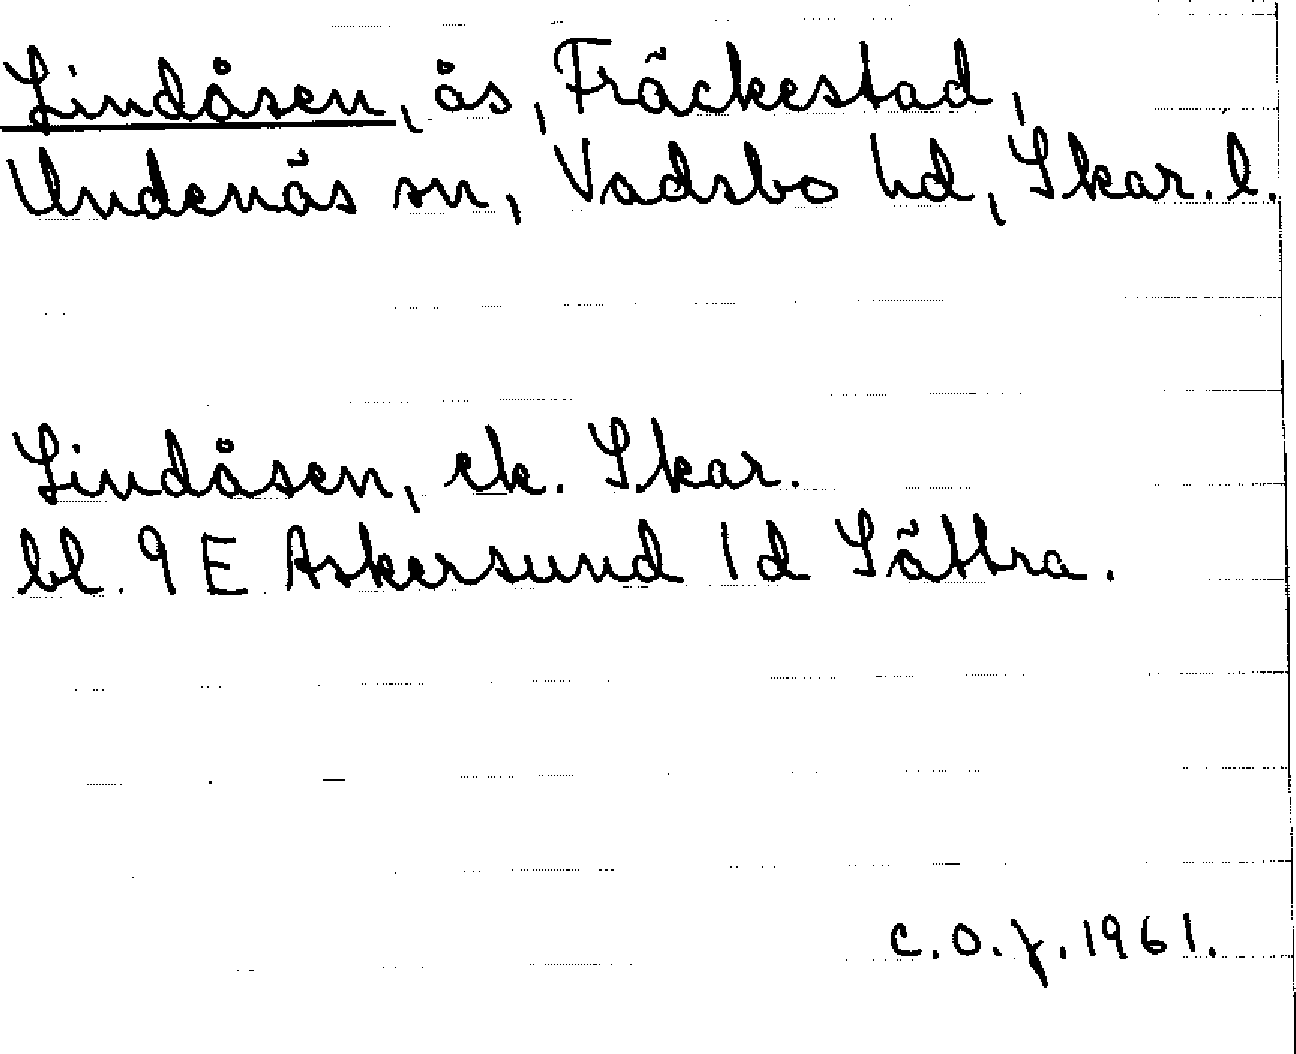 Lindåsen, ås, Fräckestad,
Undenäs sn, Vadsbo hd, Skar. l.
Lindåsen, ek. Skar.
bl. 9 E Askersund 1 d Sättra.
C.O.J. 1961.